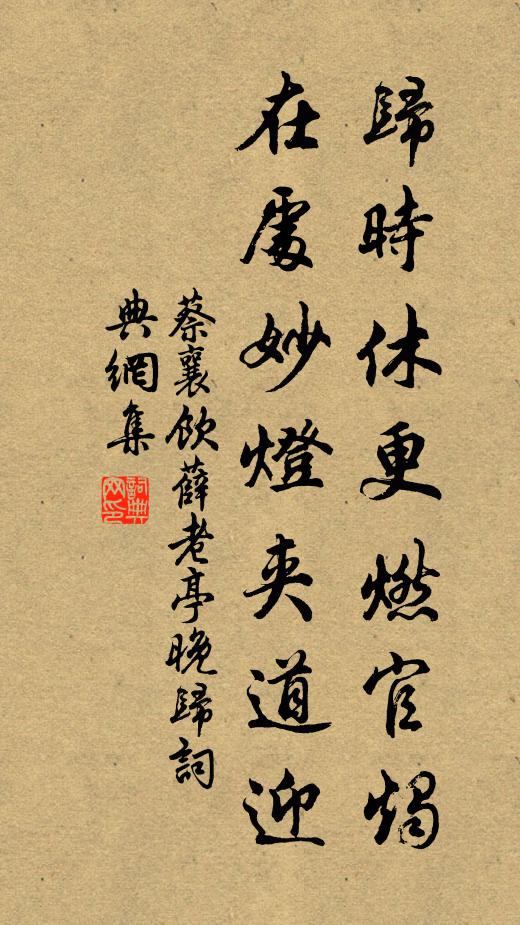 歸時休更燃官燭
在處妙燈夾道迎
蔡襄飲薛老亭晚歸詞
典網集
詞典網印